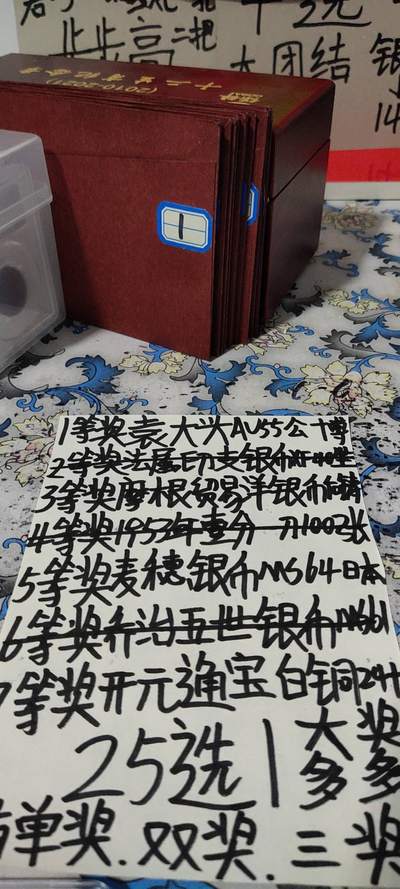 步步高二把
选
大团结 银
14
十二生肖纪念章
(2010-2021)
1
1等奖袁大头AU55公博
2等奖法属印支银币XF40坐
3等奖摩根贸易洋银币
4等奖1953年壹分一刀100张
5等奖麦穗银币MS64日本
6等奖乔治五世银币MS61
7等奖开元通宝白铜
25选1大奖
多多
单奖.双奖.三奖